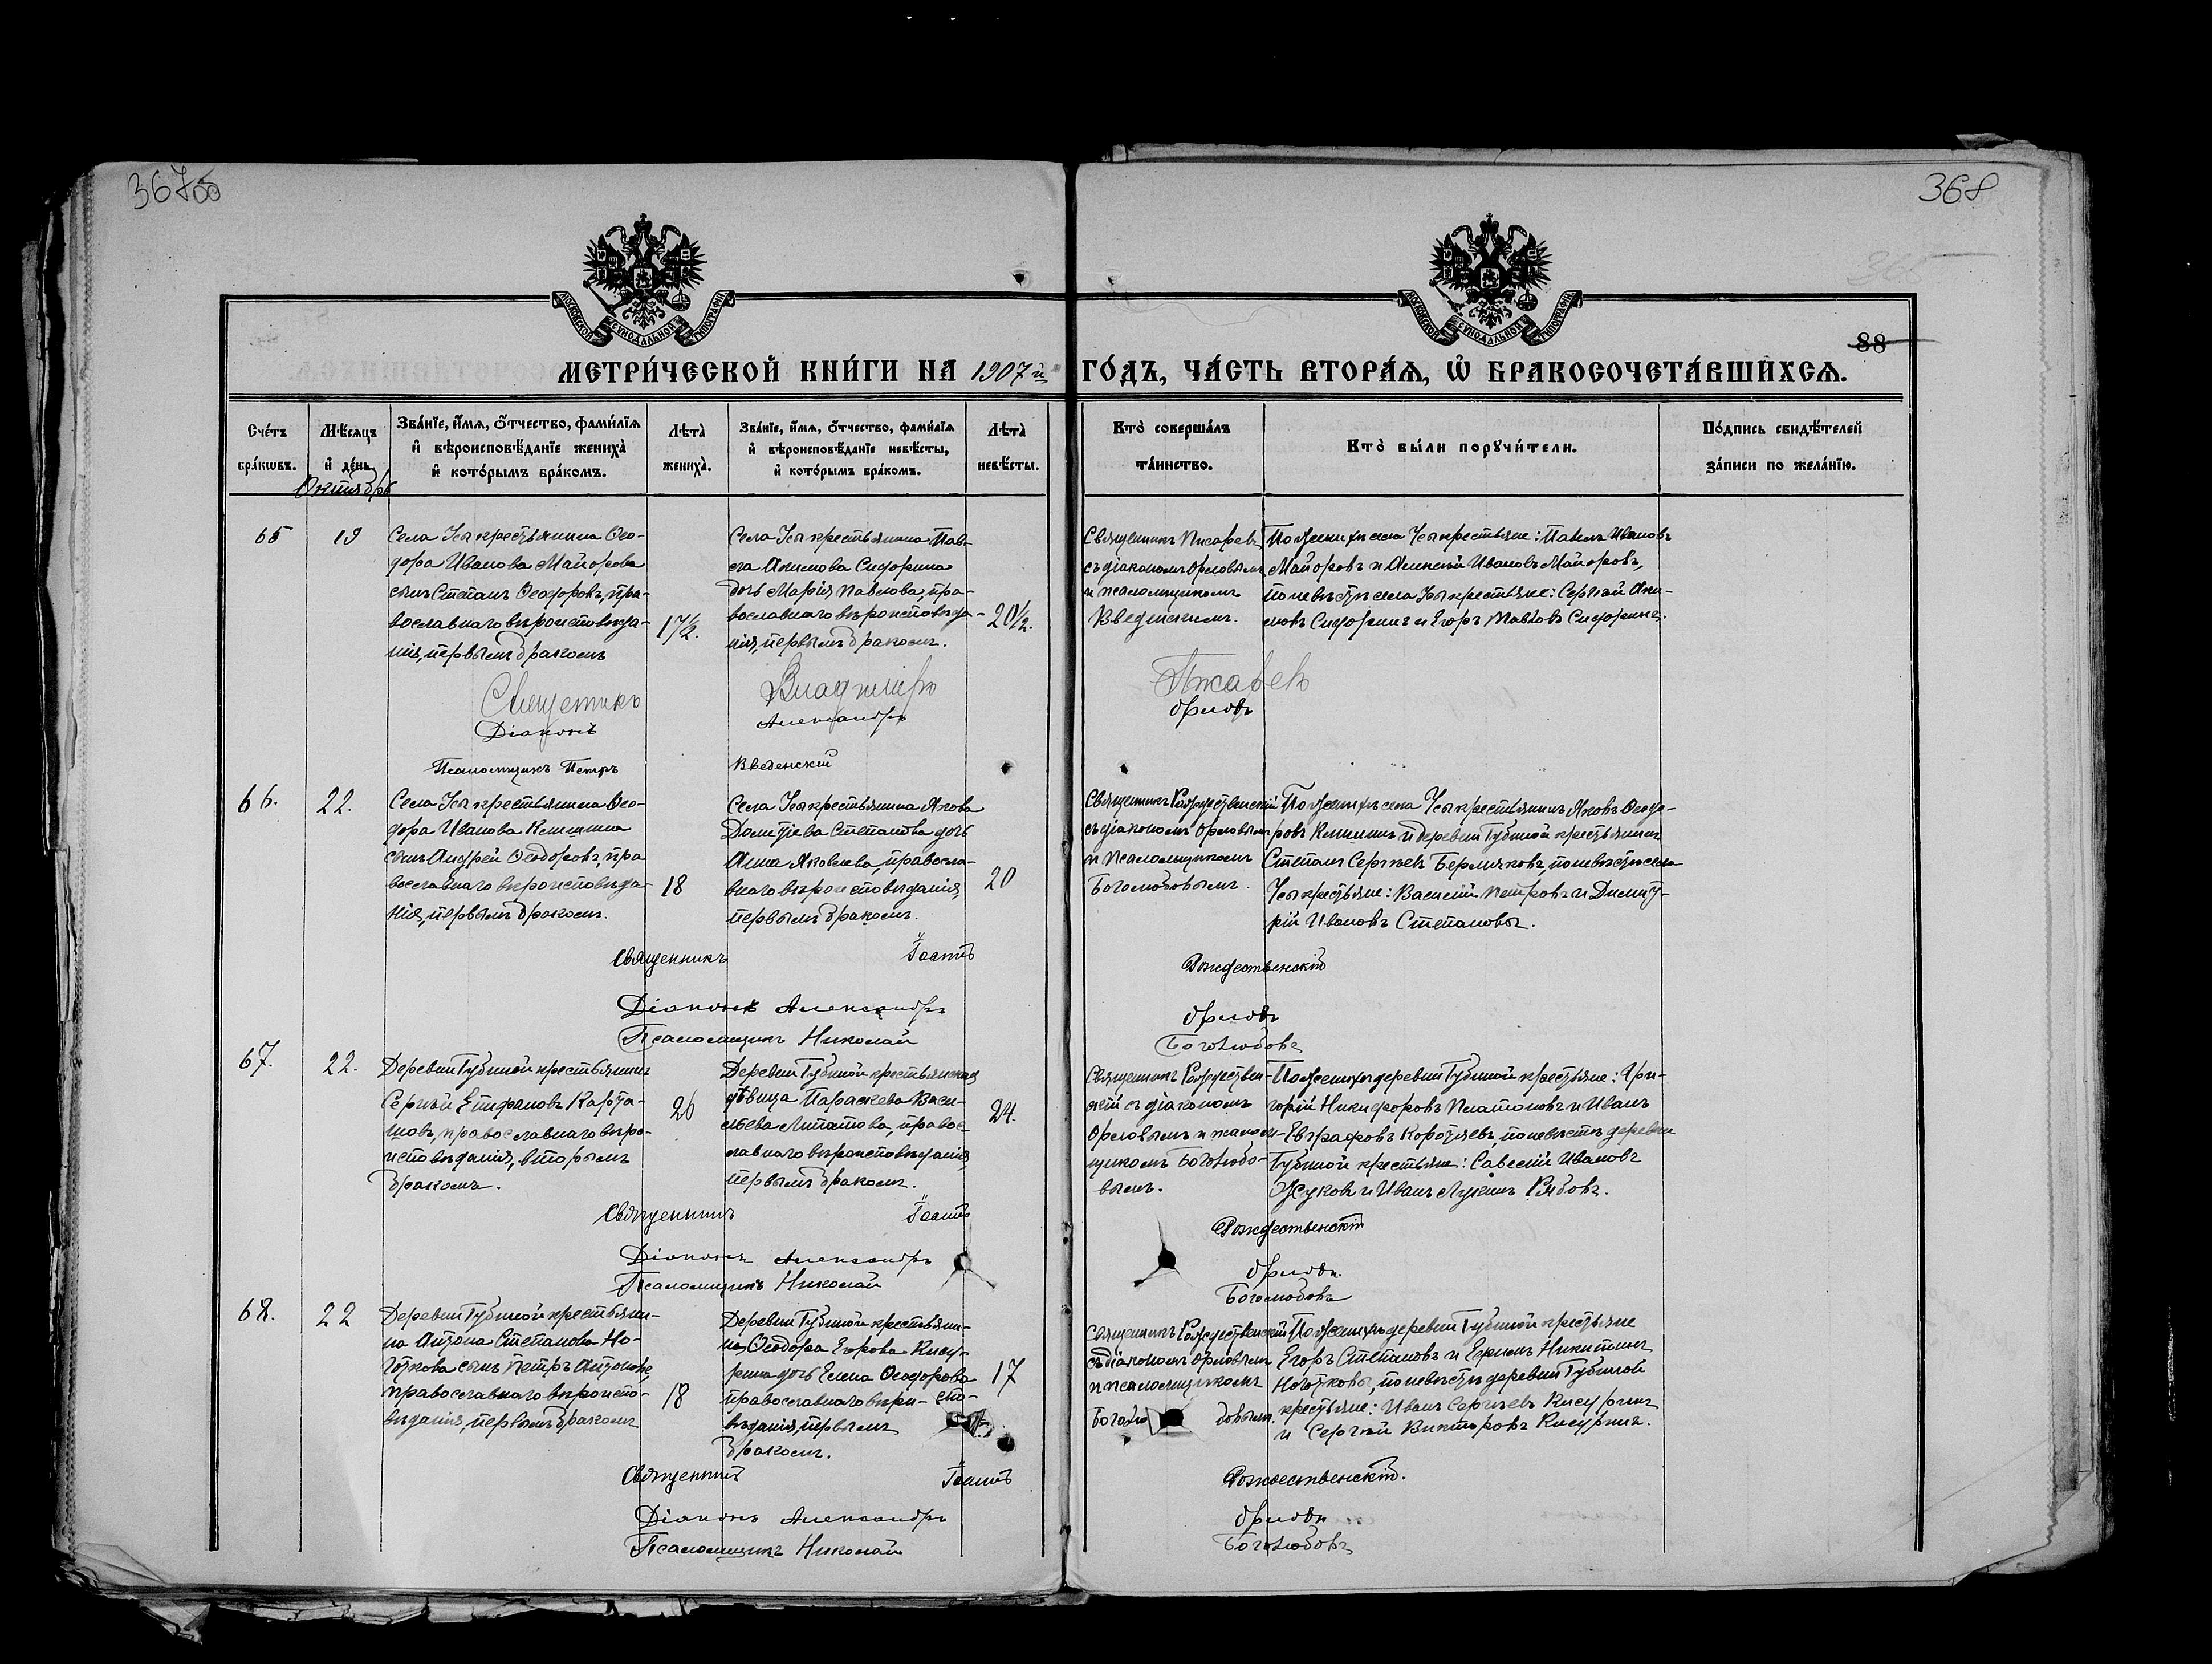 367об
368
МОСКОВСКОЙ СѴНОДАЛЬНОЙ ТИПОГРАФІИ
МОСКОВСКОЙ СѴНОДАЛЬНОЙ ТИПОГРАФІИ
88
МЕТРИ́ЧЕСКОЙ КНИ́ГИ НА 1907й ГО́ДЪ, ЧА́СТЬ ВТОРА́Ѧ, Ѡ҆ БРАКОСОЧЕТА́ВШИХСѦ.
Сче́тъ бра́кѡвъ.
Мѣ́сѧцъ и҆ де́нь.
Зва́нїе, и҆́мѧ, о҆́тчество, фами́лїѧ и҆ вѣроисповѣ́данїе жениха̀ и҆ кото́рымъ бра́комъ.
Лѣта̀ жениха̀.
Зва́нїе, и҆́мѧ, о҆́тчество, фами́лїѧ и҆ вѣроисповѣ́данїе невѣ́сты, и҆ кото́рымъ бра́комъ.
Лѣта̀ невѣ́сты.
Кто̀ соверша́лъ та́инство.
Кто̀ бы́ли порꙋчи́тели.
По́дпись свидѣ́телей за́писи по жела́нїю.
Октябрь
65
19
Села Усы крестьянина Ѳео-
дора Иванова Майорова
сынъ Стефанъ Ѳеодоровъ, пра-
вославнаго вѣроисповѣда-
нія, первымъ бракомъ
17½.
Села Усы крестьянина Пав-
ла Акимова Сидорина
дочь Марія Павлова, пра-
вославнаго вѣроисповѣда-
нія, первымъ бракомъ.
20½.
Священникъ Писаревъ
съ діакономъ Орловымъ
и псаломщикомъ
Введенскимъ.
По женихѣ села Усы крестьяне: Павелъ Ивановъ
Майоровъ и Алексій Ивановъ Майоровъ,
по невѣстѣ села Усы крестьяне: Сергій Аки-
мовъ Сидоринъ и Егоръ Павловъ Сидоринъ.
Священникъ Владиміръ Писаревъ
Діаконъ Александръ Орловъ
Псаломщикъ Петръ Введенскій
66.
22.
Села Усы крестьянина Ѳео-
дора Иванова Климина
сынъ Андрей Ѳеодоровъ, пра
вославнаго вѣроисповѣда-
нія, первымъ бракомъ.
18
Села Усы крестьянина Якова
Дометіева Степанова дочь
Анна Яковлева, правосла-
внаго вѣроисповѣданія,
первымъ бракомъ.
20
Священникъ Рождественскій
съ діакономъ Орловымъ
и псаломщикомъ
Боголюбовымъ.
По женихѣ села Усы крестьянинъ Яковъ Ѳеодо-
ровъ Климинъ и деревни Губиной крестьянинъ
Степанъ Сергѣевъ Бермяковъ, по невѣстѣ села
Усы крестьяне: Василій Петровъ и Димит-
рій Ивановъ Степановы.
Священникъ Іоаннъ Рождественскій
Діаконъ Александръ Орловъ
Псаломщикъ Николай Боголюбовъ
67.
22.
Деревни Губиной крестьянинъ
Сергій Епифановъ Карта-
шовъ, православнаго вѣро-
исповѣданія, вторымъ
бракомъ.
26
Деревни Губиной крестьянская
дѣвица Параскева Васи-
льева Липатова, правос
лавнаго вѣроисповѣданія,
первымъ бракомъ.
24.
Священникъ Рождествен-
скій съ діакономъ
Орловымъ и псалом-
щикомъ Боголюбо-
вымъ.
По женихѣ деревни Губиной крестьяне: Гри-
горій Никифоровъ Платоновъ и Иванъ
Евграфовъ Коротаевъ, по невѣстѣ деревни
Губиной крестьяне: Савелій Ивановъ
Жуковъ и Иванъ Лукинъ Рябовъ.
Священникъ Іоаннъ Рождественскій
Діаконъ Александръ Орловъ.
Псаломщикъ Николай Боголюбовъ
68.
22
Деревни Губиной крестьяни-
на Антона Степанова Но-
готкова сынъ Петръ Антоновъ,
православнаго вѣроиспо-
вѣданія, первымъ бракомъ
18
Деревни Губиной крестьяни-
на Ѳеодора Егорова Кису-
рина дочь Елена Ѳеодорова
православнаго вѣрои-спо-
вѣданія, первымъ
бракомъ.
17
Священникъ Рождественскій
съ діакономъ Орловымъ
и псаломщикомъ
Боголю бовымъ.
По женихѣ деревни Губиной крестьяне
Егоръ Степановъ и Ефимъ Никитинъ
Ноготковы, по невѣстѣ деревни Губиной
крестьяне: Иванъ Сергѣевъ Кисуринъ
и Сергій Викторовъ Кисуринъ.
Священникъ Іоаннъ Рождественскій.
Діаконъ Александръ Орловъ
Псаломщикъ Николай Боголюбовъ